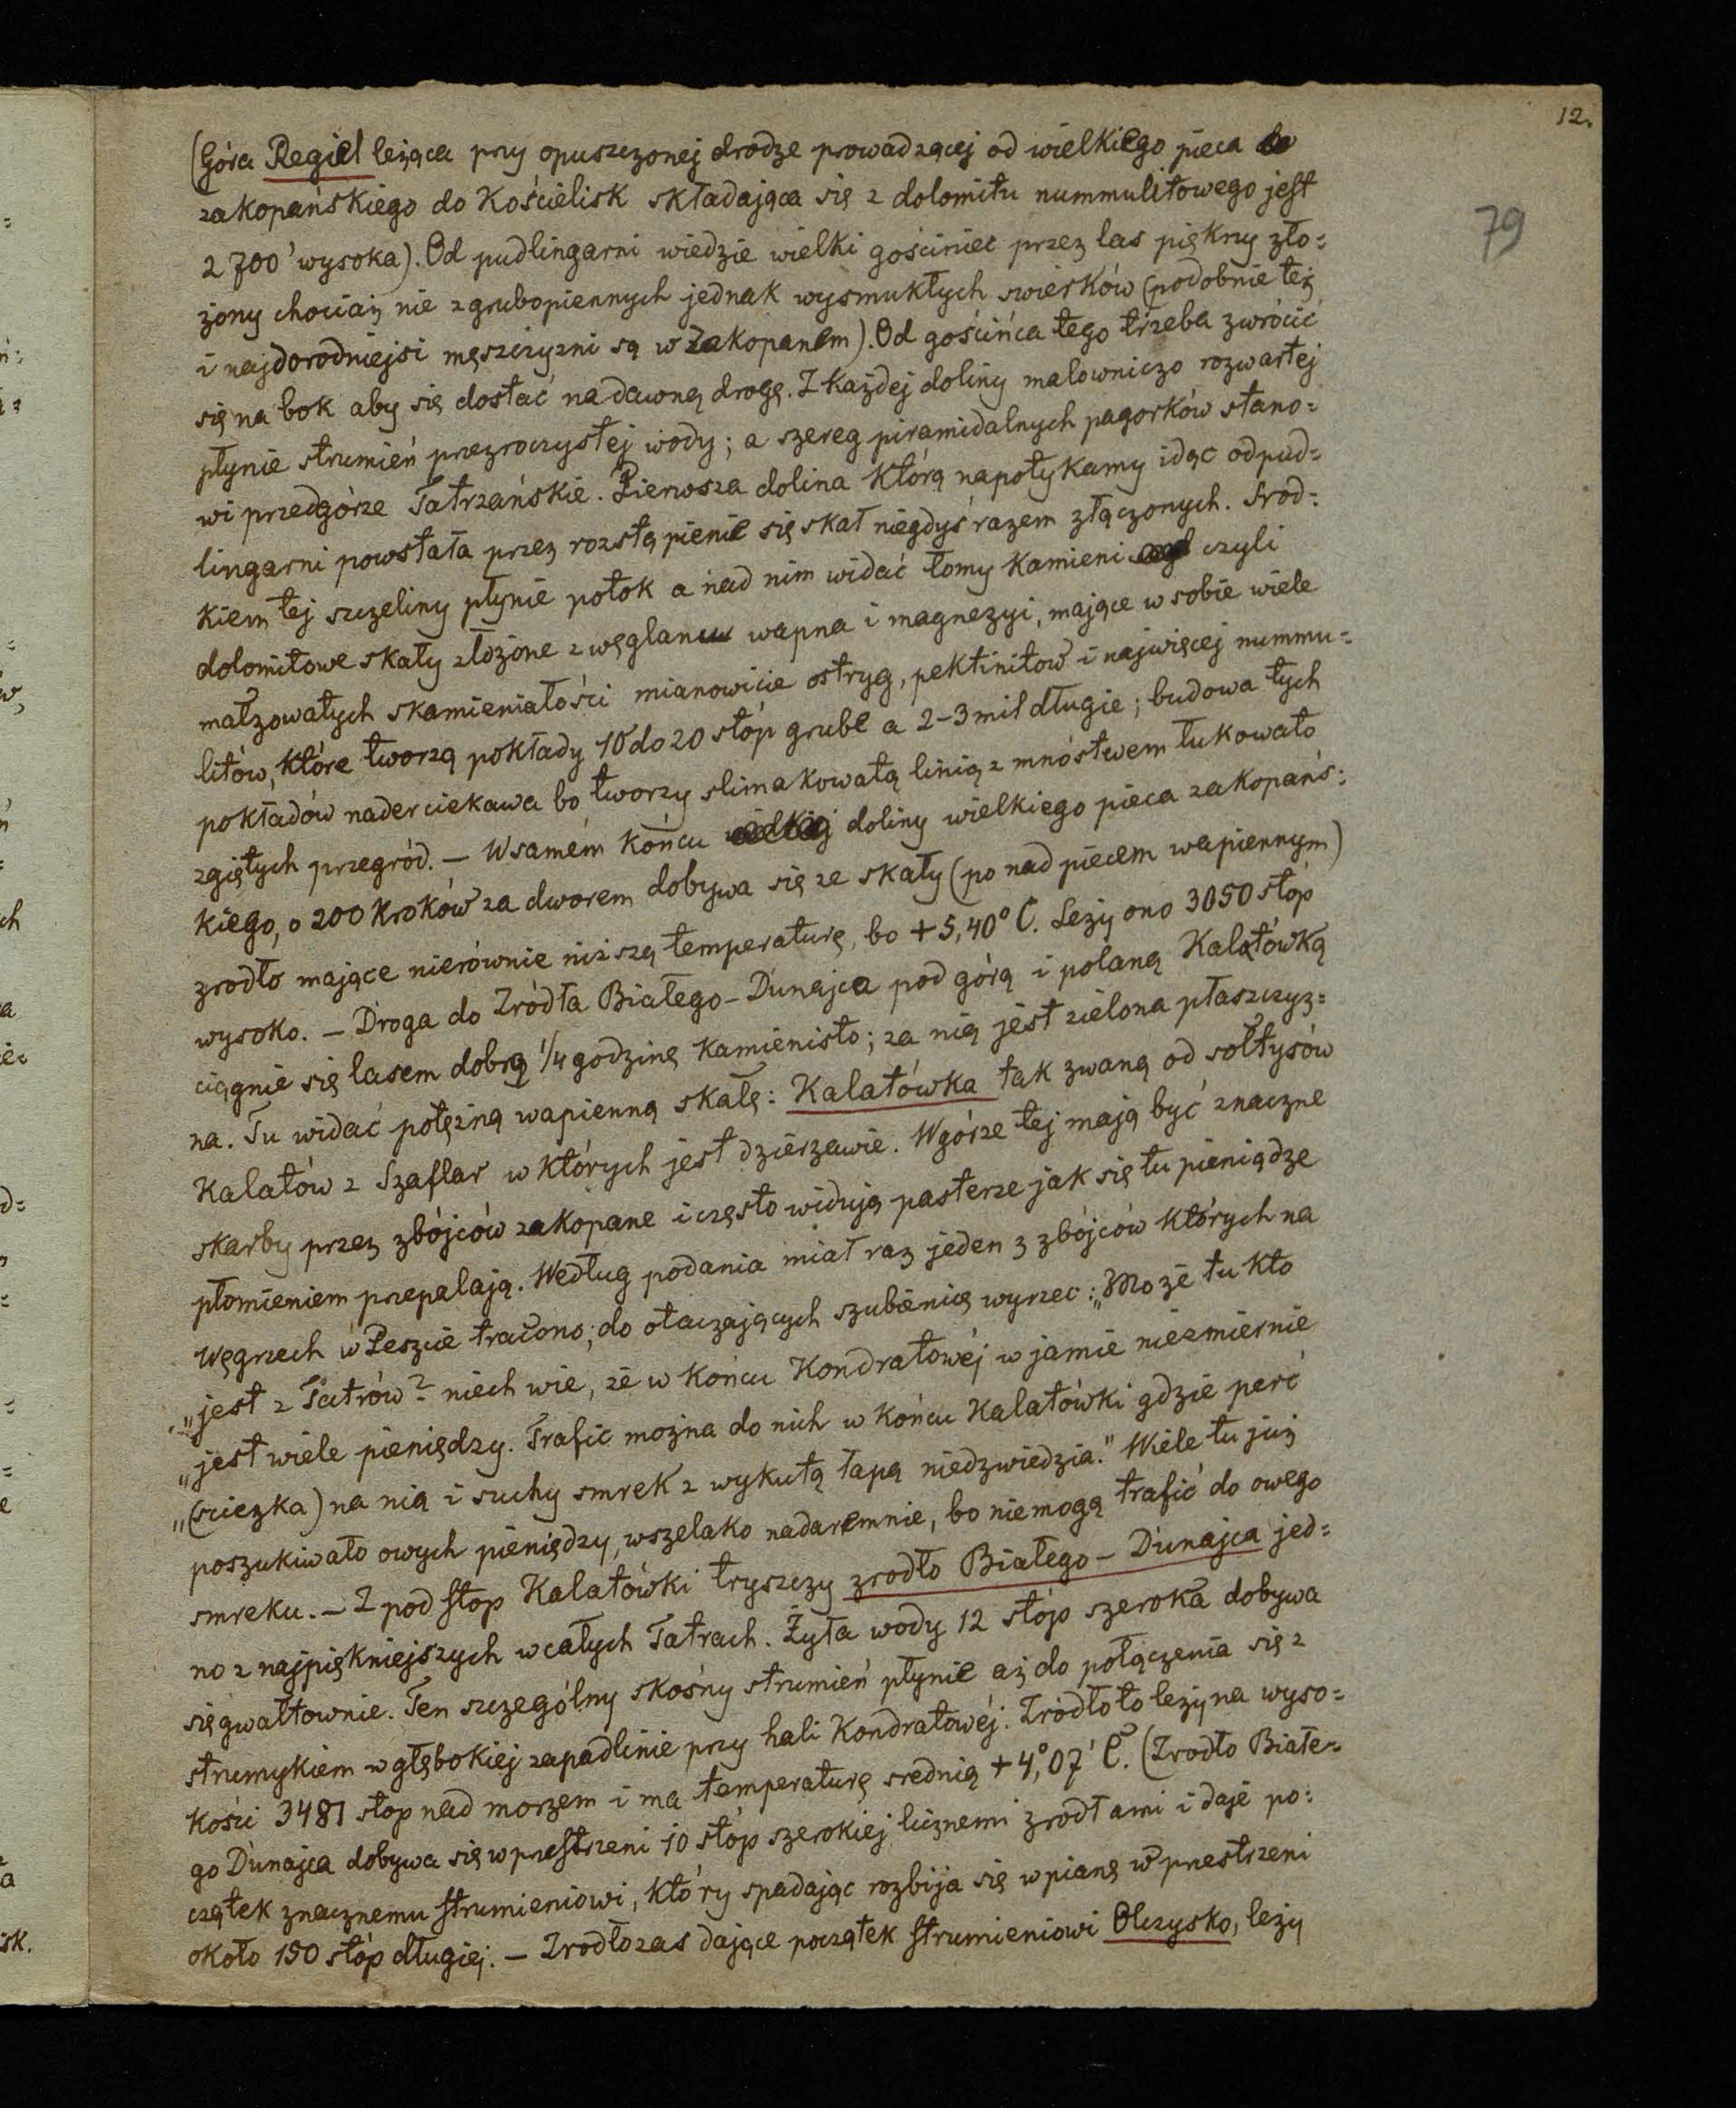 12.
79
(Góra Regiel leżąca przy opuszczonej drodze prowadzącej od wielkiego pieca
zakopańskiego do Kościelisk składająca się z dolomitu nummulitowego jest
2700' wysoka). Od pudlingarni wiedzie wielki gościniec przez las piękny zło=
żony chociaż nie z grubopiennych jednak wysmukłych swierków (podobnie też
i najdorodniejsi męszczyzni są w Zakopanem). Od gościńca tego trzeba zwrócić
się na bok aby się dostać na dawną drogę. Z każdej doliny malowniczo rozwartej
płynie strumień przezroczystej wody; a szereg piramidalnych pagorków stano=
wi przedgórze Tatrzańskie. Pierwsza dolina którą napotykamy idąc od pud=
lingarni powstała przez rozstąpienie się skał niegdyś razem złączonych. Srod=
kiem tej szczeliny płynie potok a nad nim widać łomy kamieni czyli
dolomitowe skały złożone z węglanu wapna i magnezyi, mające w sobie wiele
małżowatych skamieniałości mianowicie ostryg, pektinitow i najwięcej nummu=
litów, które tworzą pokłady 10 do 20 stóp grube a 2-3 mil długie; budowa tych
pokładów nader ciekawa bo tworzy slimakowatą linią z mnóstwem łukowato
zgiętych przegród. — W samém końcu doliny wielkiego pieca zakopańs=
kiego, o 200 kroków za dworem dobywa się ze skały (ponad piecem wapiennym)
zrodło mające nierównie niższą temperaturę, bo +5,40° C. Leży ono 3050 stóp
wysoko. — Droga do Zródła Białego-Dunajca pod górą i polaną Kalatówką
ciągnie się lasem dobrą 1/4 godzinę kamienisto; za nią jest zielona płaszczyz=
na. Tu widać potężną wapienną skałę: Kalatówka tak zwaną od sołtysów
Kalatów z Szaflar w których jest dzierzawie. W górze tej mają być znaczne
skarby przez zbójców zakopane i często widują pasterze jak się tu pieniądze
płomieniem przepalają. Według podania miał raz jeden z zbójców których na
Węgrzech w Peszcie tracono; do otaczających szubienicę wyrzec: „Może tu kto
„jest z Tatrów? niech wie, że w końcu Kondratowéj w jamie niezmiernie
„jest wiele pieniędzy. Trafić można do nich w końcu Kalatówki gdzie perć
„(sciezka) na nią i suchy smrek z wykutą łapą niedzwiedzia." Wiele tu już
poszukiwało owych pieniędzy, wszelako nadaremnie, bo niemogą trafić do owego
smreku. — Z pod stop Kalatówki tryszczy zrodło Białego-Dunajca jed=
no z najpiękniejszych w całych Tatrach. Żyła wody 12 stóp szeroka dobywa
się gwałtownie. Ten szczególny skośny strumień płynie aż do połączenia się z
strumykiem w głębokiej zapadlinie przy hali Kondratowéj. Zrodło to leży na wyso=
kości 3481 stop nad morzem i ma temperaturę srednią +4,°07' C. (Zrodło Białe=
go Dunajca dobywa się w przestrzeni 10 stóp szerokiej licznemi zrodłami i daje po=
czątek znacznemu strumieniowi, który spadając rozbija się w pianę w przestrzeni
około 150 stóp długiej. — Zrodło zas dające początek strumieniowi Olczysko, leży